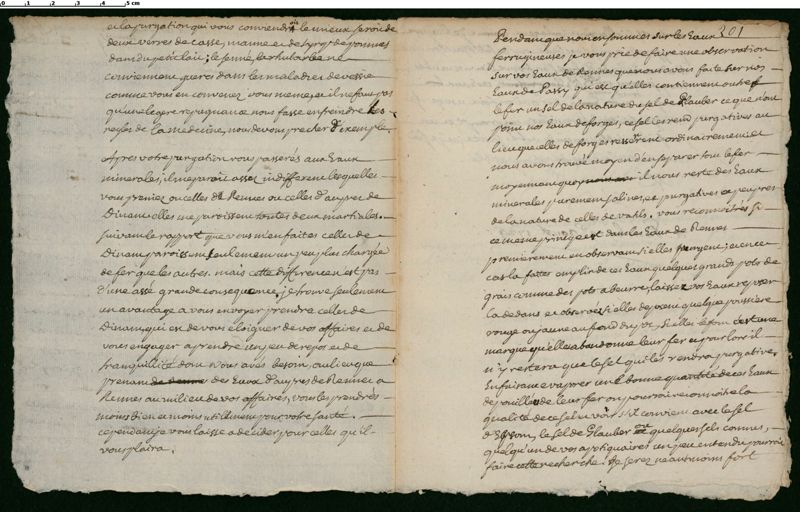 0 1 2 3 4 5 cm
et la purgation qui vous conviendra le mieux seroit de
deux verres de casse, manne et de syrop de pommes
dans du petit lait; le senné, la rhubarbe ne
conviennent gueres dans les maladies de vessie
comme vous en convenez vous meme, et il ne faut pas
qu'une legere repugnance nous fasse enfreindre les
regles de la medecine, nous devons precher d'exemple
Apres votre purgation vous passerés aux Eaux
minerales, il me paroit assez indifferent lesquelles
vous preniez ou celles de Rennes ou celles d'aupres de
Dinan, elles me paroissent toutes deux martiales.
suivant le rapport que vous m'en faites celles de
Dinan paroissent seulement un peu plus chargées
de fer que les autres. mais cette difference n'est pas
d'une assé grande consequence, je trouve seulement
un avantage a vous envoyer prendre celles de
Dinan, qui est de vous eloigner de vos affaires et de
vous engager a prendre un peu de repos et de
tranquillité dont vous avés besoin, au lieu que
prenant des Eaux d'aupres de Rennes a
Rennes au milieu de vos affaires, vous les prendrés
moins bien et moins utilement pour votre santé.
cependant je vous laisse a decider pour celles qu'il
vous plaira.
301
Pendant que nous en sommes sur les Eaux
ferrugineuses je vous prie de faire une observation
sur vos Eaux de Rennes que nous avons faite sur nos
Eaux de Passy qui est qu'elles contiennent outre
le fer un sel de la nature du sel de Glauber ce que n'ont
point nos Eaux de forges, ce sel les rend purgatives au
lieu que celles de forges resserrent ordinairement et
nous avons trouvé moyen d'en separer tout le fer
moyennant quoy il nous reste des Eaux
minerales purement salines, et purgatives a peu pres
de la nature de celles de vahls. vous reconnoitrés si
ce meme principe est dans les Eaux de Rennes
premierement en observant si elles purgent; et en ce
cas la faites emplir de ces Eaux quelques grands pots de
grais comme des pots a beurre, laissez vos Eaux reposer
la dedans et observés si elles deposent quelque poussiere
rouge ou jaune au fond du pot, si elles le font c'est une
marque qu'elles abandonnent leur fer et pour lors il
n'y restera que le sel qui les rendra purgatives,
En faisant evaporer une bonne quantité de ces Eaux
depouillées de leur fer on pourroit reconnoitre la
qualité de ce sel et voir s'il convient avec le sel
d'Epsom, le sel de Glauber ou quelques sels connus,
quelqu'un de vos apotiquaires un peu entendu pourroit
faire cette recherche. Je serez neantmoins fort